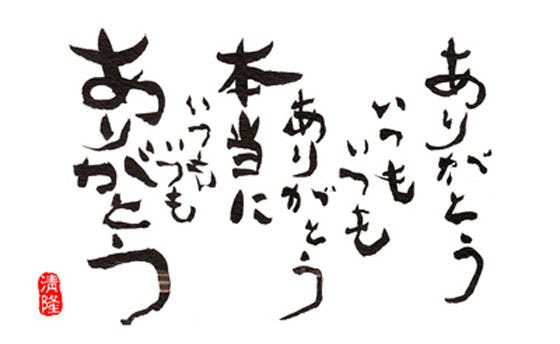 ありがとう
いつも
いつも
ありがとう
本当に
いつも
いつも
ありがとう
清隆